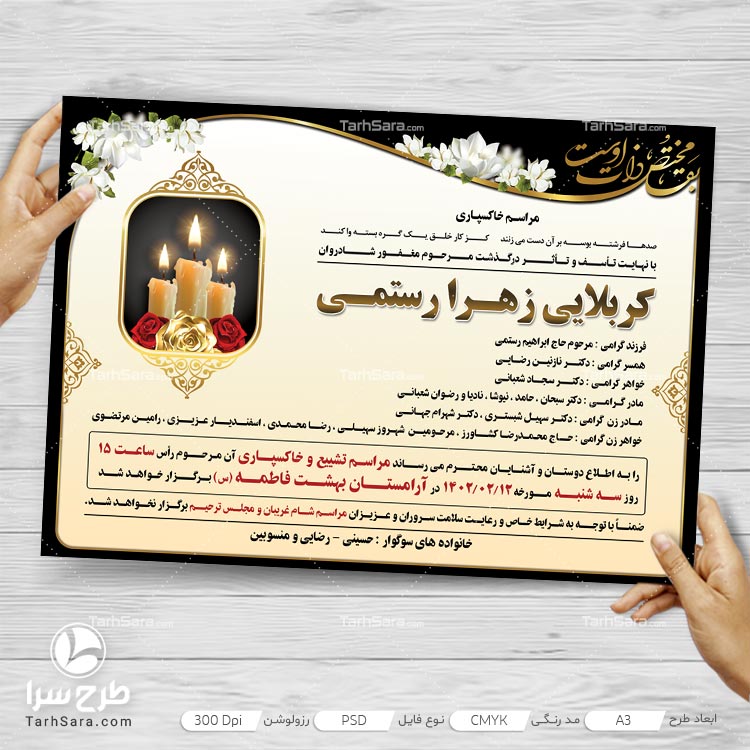 بقا مختص ذات اوست
مراسم خاکسپاری
صدها فرشته بوسه بر آن دست می زنند کز کار خلق یک گره بسته وا کند
با نهایت تأسف و تأثر درگذشت مرحوم مغفور شادروان
کربلایی زهرا رستمی
فرزند گرامی : مرحوم حاج ابراهیم رستمی
همسر گرامی : دکتر نازنین رضایی
خواهر گرامی : دکتر سجاد شعبانی
مادر گرامی : دکتر سبحان ، حامد ، نیوشا ، نادیا و رضوان شعبانی
مادر زن گرامی : دکتر سهیل شبستری ، دکتر شهرام جهانی
خواهر زن گرامی : حاج محمدرضا کشاورز ، مرحومین شهروز سهیلی ، رضا محمدی ، اسفندیار عزیزی ، رامین مرتضوی
را به اطلاع دوستان و آشنایان محترم می رساند مراسم تشییع و خاکسپاری آن مرحوم رأس ساعت ۱۵
روز سه شنبه مورخه ۱۴۰۲/۰۲/۱۲ در آرامستان بهشت فاطمه (س) برگزار خواهد شد
ضمناً با توجه به شرایط خاص و رعایت سلامت سروران و عزیزان مراسم شام غریبان و مجلس ترحیم برگزار نخواهد شد.
خانواده های سوگوار : حسینی - رضایی و منسوبین
طرح سرا
TarhSara.com
ابعاد طرح A3 مد رنگی CMYK نوع فایل PSD رزولوشن 300 Dpi